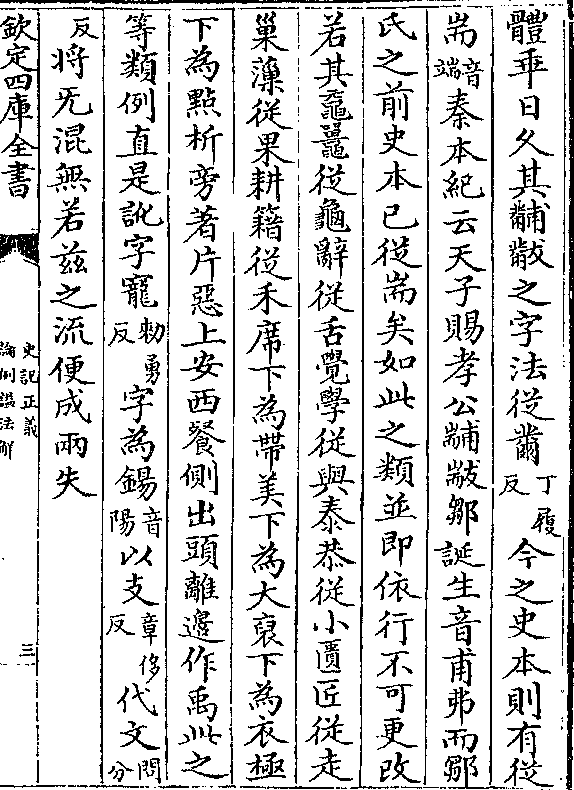 體乖日久其黼黻之字法從黹丁履反今之史本則有從
耑音端秦本紀云天子賜孝公黼黻鄒誕生音甫弗而鄒
氏之前史本已從耑矣如此之類並即依行不可更改
若其黿鼉從龜辭從舌覺學從與泰恭從小匱匠從走
巢藻從果耕籍從禾席下為帶美下為大裒下為衣極
下為點析旁著片惡上安西餐側出頭離邊作禹此之
等類例直是訛字寵勅勇反字為錫音陽以支章移反代文問分
反将旡混無若兹之流便成兩失
欽定四庫全書
史記正義
論例諡法解
三